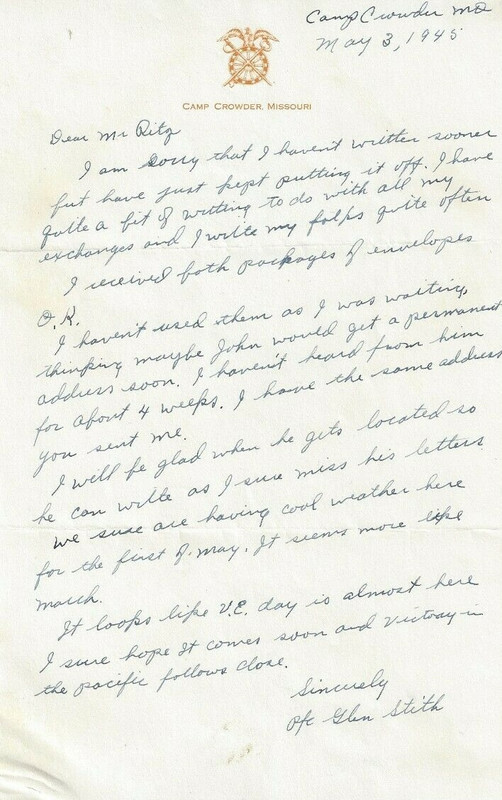 Camp Crowder Mo
May 3, 1945
CAMP CROWDER, MISSOURI
Dear Mr Ritz
I am sorry that I haven't written sooner
but have just kept putting it off. I have
quite a bit of writing to do with all my
exchanges and I write my folks quite often
I received both packages of envelopes
O.K.
I haven't used them as I was waiting,
thinking maybe John would get a permanent
address soon. I haven't heard from him
for about 4 weeks. I have the same address
you sent me.
I will be glad when he gets located so
he can write as I sure miss his letters
We sure are having cool weather here
for the first of may. It seems more like
march.
It looks like V.E. day is almost here
I sure hope it comes soon and Victory in
the pacific follows close.
Sincerely
Pfc Glen Stith